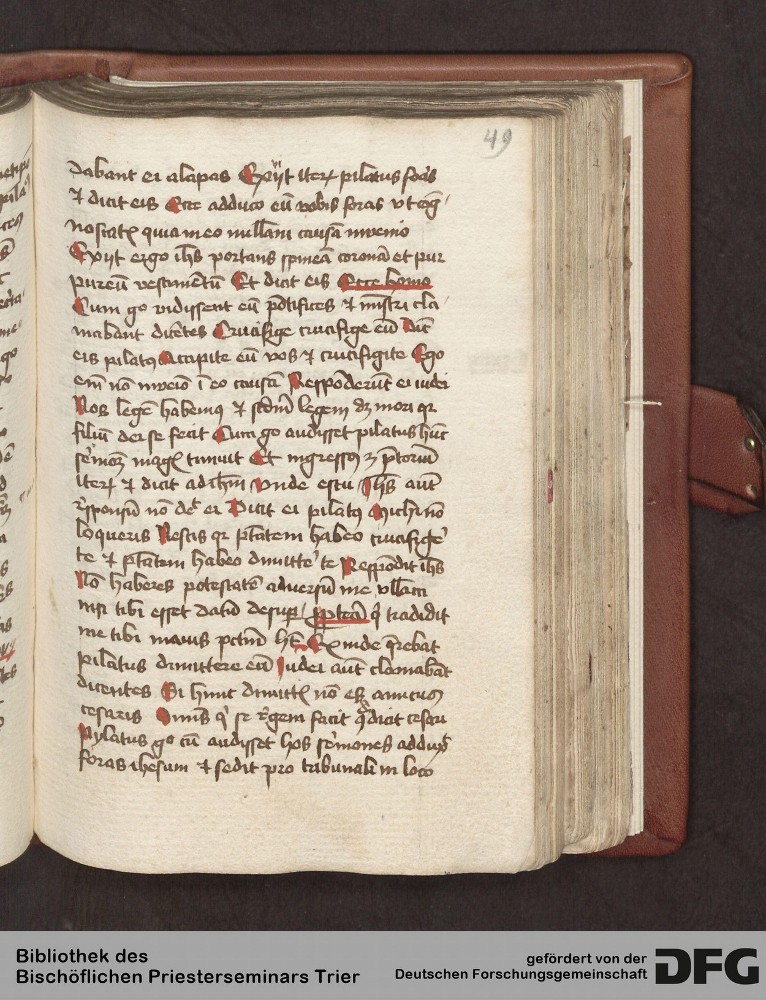 49
dabant ei alapas Exijt iterꝝ pilatus foras
et dicit eis Ecce adduco eū vobis foras vt cog
noscatꝭ quia in eo nullam causā invenio
Exijt ergo ihs portans spineā coronā et pur
pureū vestimētū Et dicit eis Ecce homo
Cum go vidissent eū pōtifices et mīstri cla
mabant dicētes Crucifige crucifige eū Dic̄
eis pilatꝯ Accipite eū vos et crucifigite Ego
em̄ nō inveīo ī eo causā Respōderūt ei iudei
Nos legē habemꝯ et scdm̄ legem dꝫ mori qr
filiū dei se fecit Cum go audisset pilatus hūc
sermoꝫ magꝭ timuit Et ingressꝯ ꝫ p̄toriū
iterꝝ et dicit ad ihm̄ vnde es tu Ihs aut̄
rn̄sponsū nō dꝫ ei Dicit ei pilatꝯ Michi nō
loqueris Nescis qr ptātem habeo crucifige
te et ptātem habeo dimitte te Respōdit ihs
Nō haberes potestatē adversū me vllam
nisi tibi esset datū desuꝑ ꝓpterea qͥ tradidit
me tibi maius pctm̄ hꝫ Exinde q̄rebat
pilatus dimittere eū Iudei aut̄ clamabāt
dicentes Si hunc dimittꝭ nō es amicus
cesaris Omnis qͥ se regem facit ꝯtͣdicit cesari
Pylatus go cū audisset hos sermones adduxͥ
foras ihesum et sedit pro tribunali in loco
Bibliothek des
Bischöflichen Priesterseminars Trier
gefördert von der
Deutschen Forschungsgemeinschaft
DFG